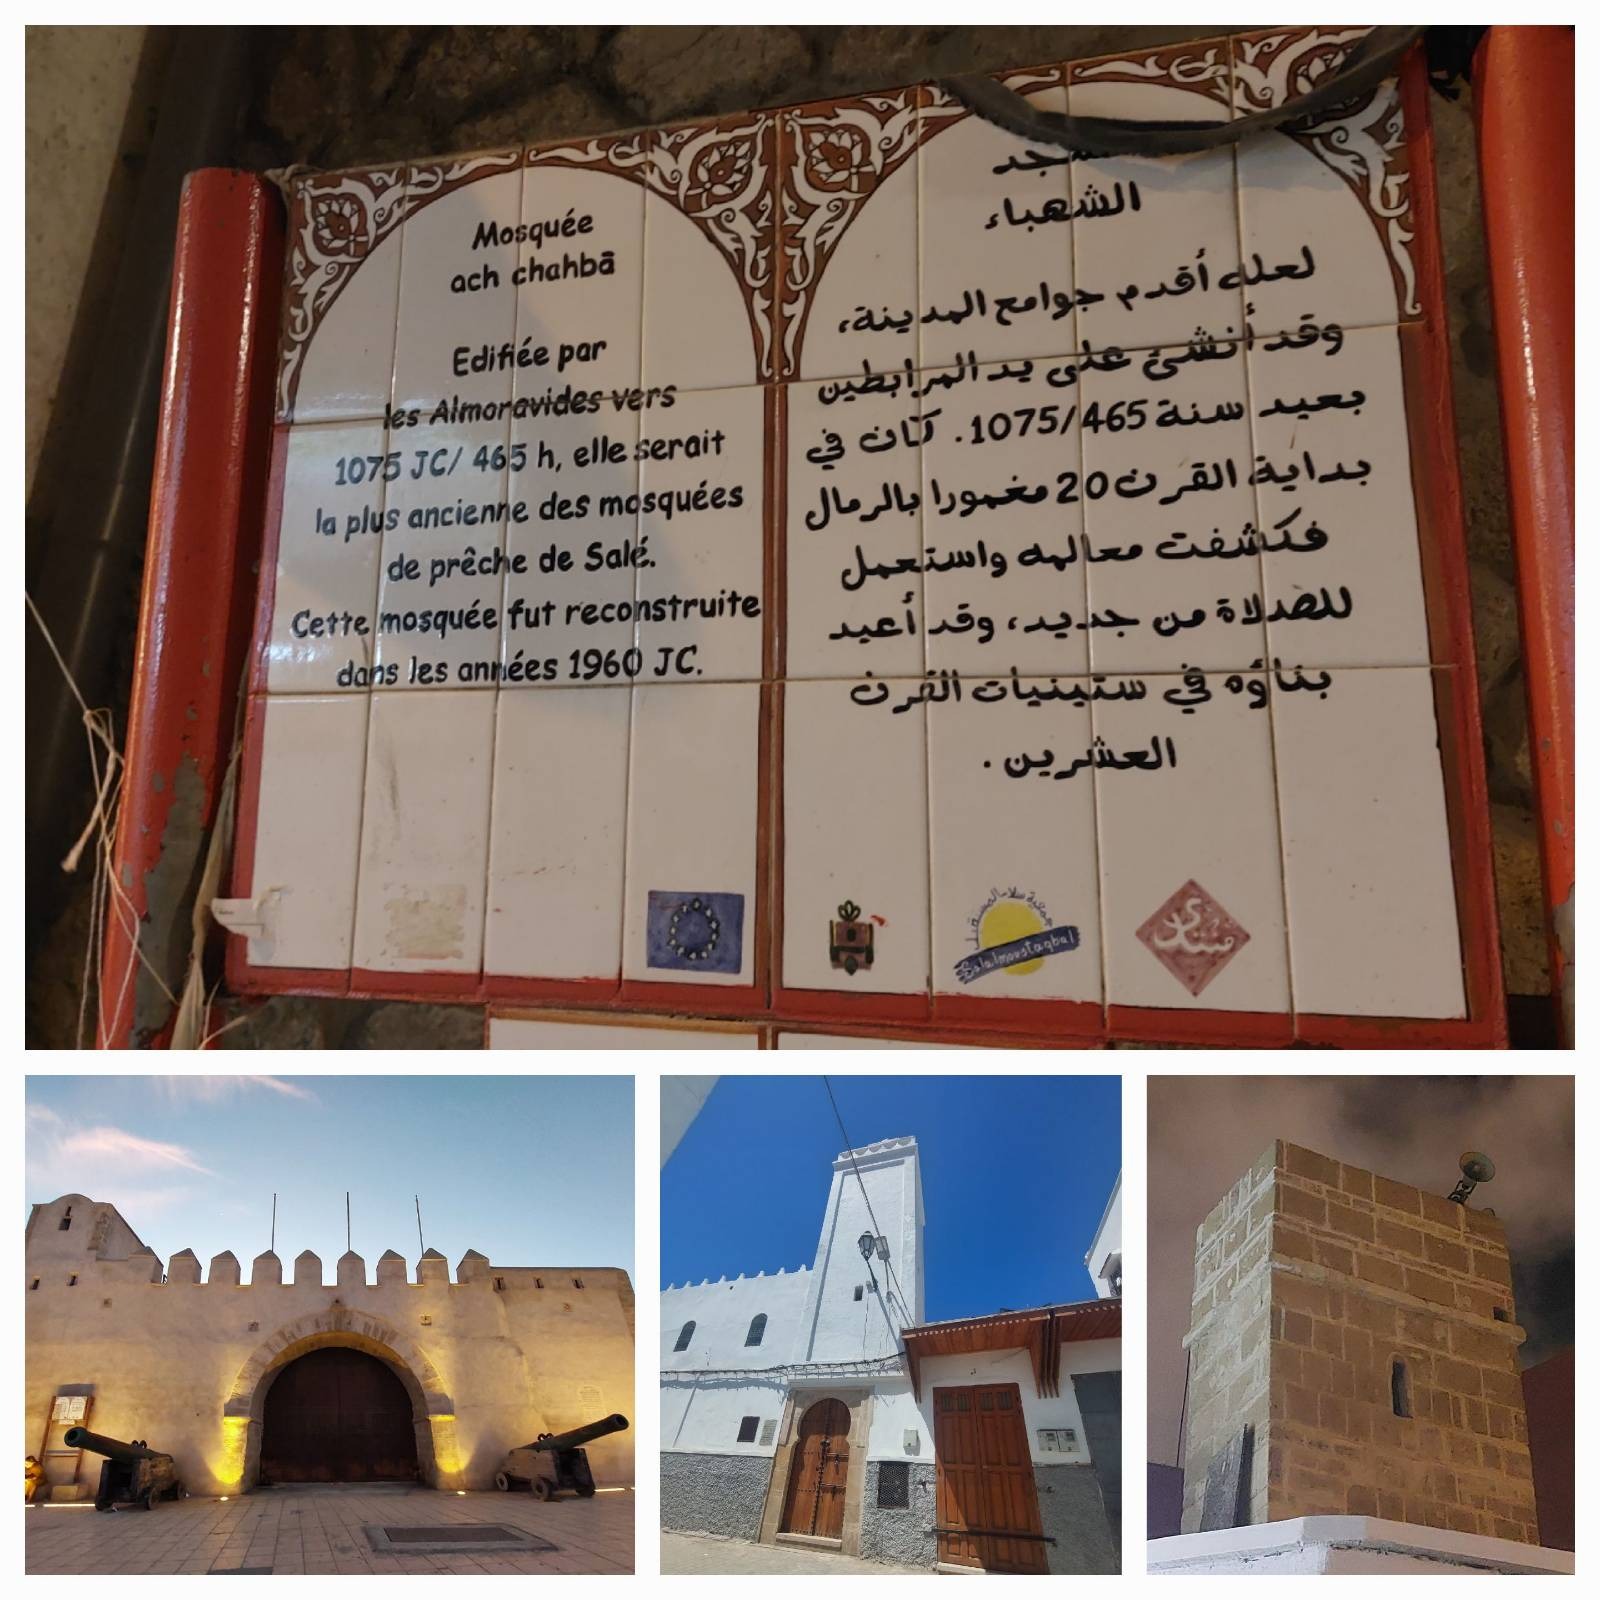 Mosquée
ach chahbā
Edifiée par
les Almoravides vers
1075 JC/ 465 h, elle serait
la plus ancienne des mosquées
de prêche de Salé.
Cette mosquée fut reconstruite
dans les années 1960 JC.
الشهباء
لعله أقدم جوامع المدينة،
وقد أنشئ على يد المرابطين
بعيد سنة 1075/465. كان في
بداية القرن 20 مغمورا بالرمال
فكشفت معالمه واستعمل
للصلاة من جديد، وقد أعيد
بناؤه في ستينيات القرن
العشرين.
جمعية سلا المستقبل
Sala Almoustaqbal